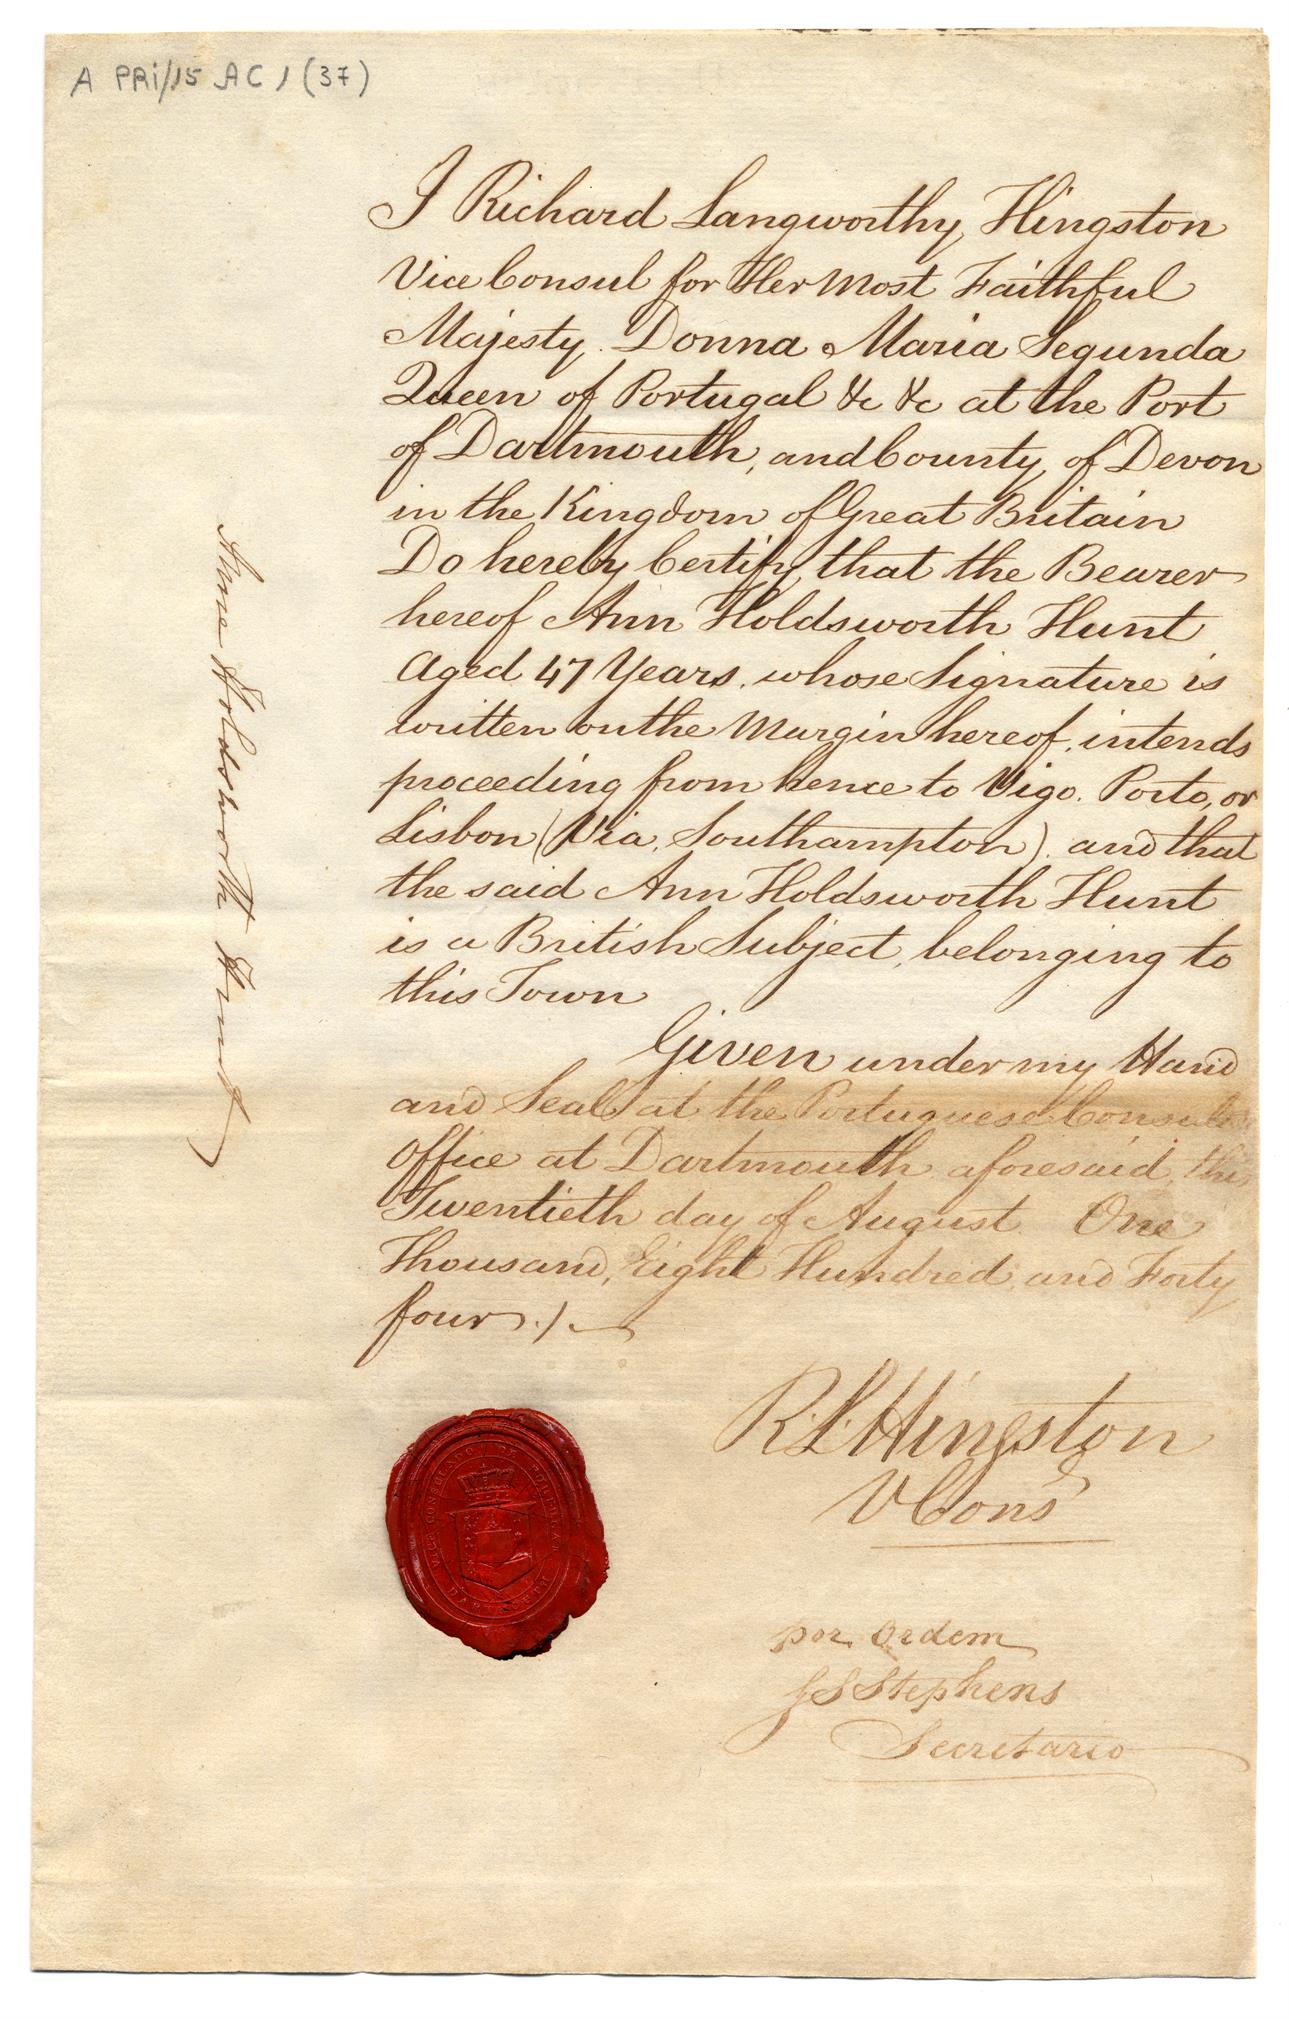 A PRI/15 AC 1 (37)
I Richard Langworthy Hingston
Vice Consul for Her Most Faithful
Majesty. Donna Maria Segunda
Queen of Portugal &c &c at the Port
of Dartmouth, and County of Devon
in the Kingdom of Great Britain
Do hereby Certify, that the Bearer
hereof Ann Holdsworth Hunt
Aged 47 Years. whose Signature is
written on the Margin hereof, intends
proceeding from hence to Vigo. Porto, or
Lisbon (Via, Southampton). and that
the said Ann Holdsworth Hunt
is a British Subject, belonging to
this Town
Given under my Hand
and Seal at the Portuguese
Office at Dartmouth aforesaid, this
Twentieth day of August One
Thousand, Eight Hundred, and Forty
four.)
Anne Holdsworth Hunt
R. L. Hingston
V Cons
por Ordem
J S Stephens
Secretario
VICE CONSULADO DE PORTUGAL
DARTMOUTH